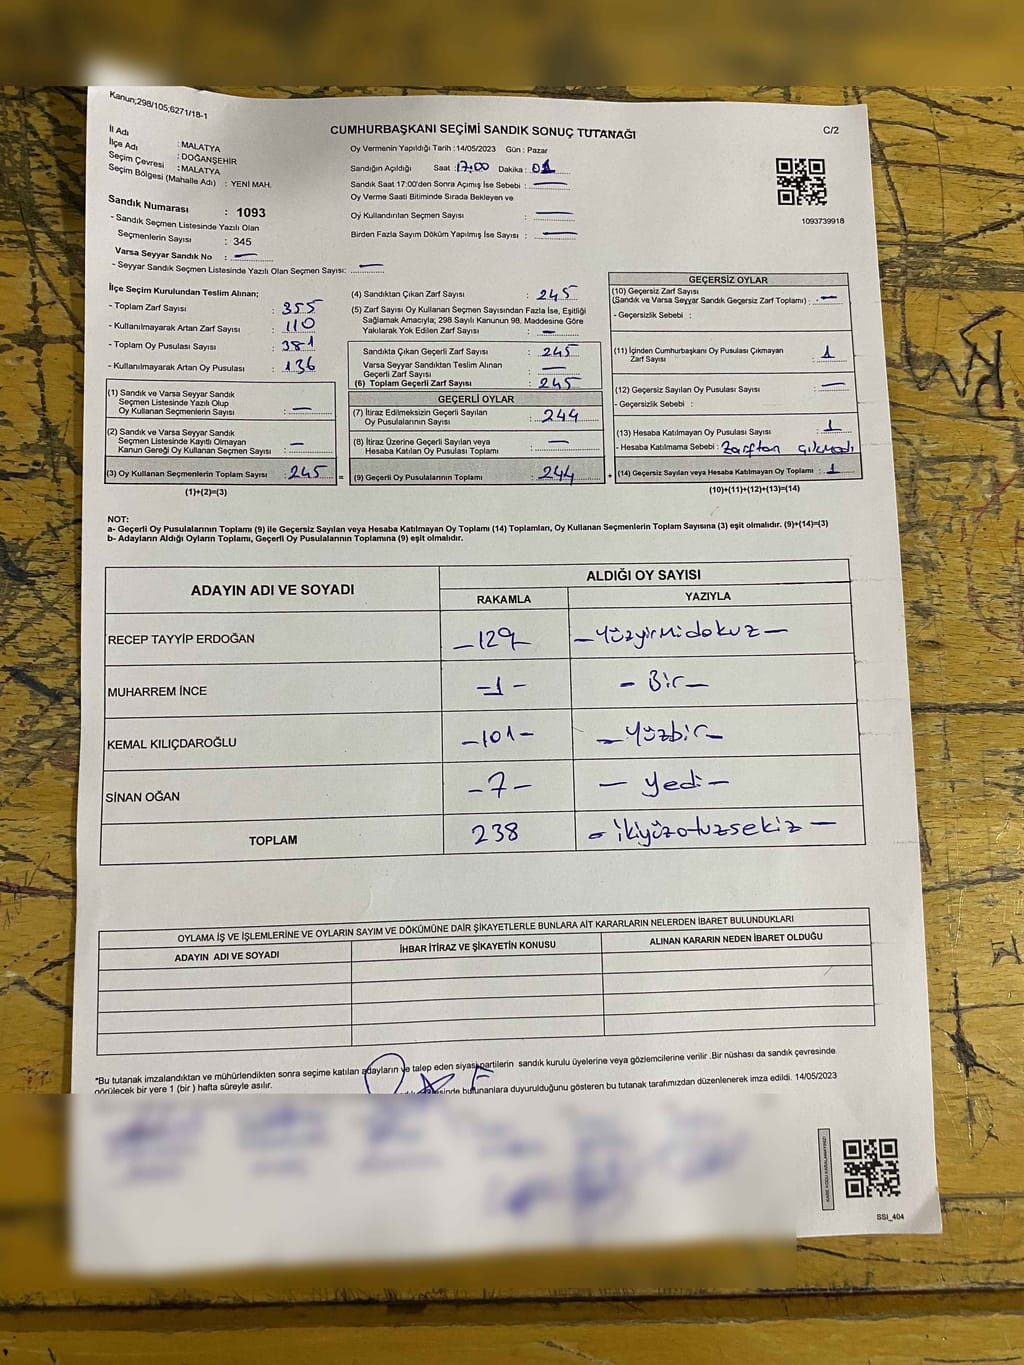 Kanun;298/105;6271/18-1
CUMHURBAŞKANI SEÇİMİ SANDIK SONUÇ TUTANAĞI
C/2
İl Adı : MALATYA
İlçe Adı : DOĞANŞEHİR
Seçim Çevresi : MALATYA
Seçim Bölgesi (Mahalle Adı) : YENİ MAH.
Sandık Numarası : 1093
- Sandık Seçmen Listesinde Yazılı Olan
Seçmenlerin Sayısı : 345
Varsa Seyyar Sandık No : —
- Seyyar Sandık Seçmen Listesinde Yazılı Olan Seçmen Sayısı: —
Oy Vermenin Yapıldığı Tarih :14/05/2023 Gün : Pazar
Sandığın Açıldığı Saat :17:00 Dakika : 01
Sandık Saat 17:00'den Sonra Açımış İse Sebebi : —
Oy Verme Saati Bitiminde Sırada Bekleyen ve
Oy Kullandırılan Seçmen Sayısı : —
Birden Fazla Sayım Döküm Yapılmış İse Sayısı : —
1093739918
İlçe Seçim Kurulundan Teslim Alınan;
- Toplam Zarf Sayısı : 355
- Kullanılmayarak Artan Zarf Sayısı : 110
- Toplam Oy Pusulası Sayısı : 381
- Kullanılmayarak Artan Oy Pusulası : 136
(1) Sandık ve Varsa Seyyar Sandık
Seçmen Listesinde Yazılı Olup
Oy Kullanan Seçmenlerin Sayısı : —
(2) Sandık ve Varsa Seyyar Sandık
Seçmen Listesinde Kayıtlı Olmayan
Kanun Gereği Oy Kullanan Seçmen Sayısı : —
(3) Oy Kullanan Seçmenlerin Toplam Sayısı : 245 =
(1)+(2)=(3)
(4) Sandıktan Çıkan Zarf Sayısı : 245
(5) Zarf Sayısı Oy Kullanan Seçmen Sayısından Fazla İse, Eşitliği
Sağlamak Amacıyla; 298 Sayılı Kanunun 98. Maddesine Göre
Yakılarak Yok Edilen Zarf Sayısı : —
Sandıkta Çıkan Geçerli Zarf Sayısı : 245
Varsa Seyyar Sandıktan Teslim Alınan
Geçerli Zarf Sayısı : —
(6) Toplam Geçerli Zarf Sayısı : 245
GEÇERLİ OYLAR
(7) İtiraz Edilmeksizin Geçerli Sayılan
Oy Pusulalarının Sayısı : 244
(8) İtiraz Üzerine Geçerli Sayılan veya
Hesaba Katılan Oy Pusulası Toplamı : —
(9) Geçerli Oy Pusulalarının Toplamı : 244 +
GEÇERSİZ OYLAR
(10) Geçersiz Zarf Sayısı
(Sandık ve Varsa Seyyar Sandık Geçersiz Zarf Toplamı) : —
- Geçersizlik Sebebi :
(11) İçinden Cumhurbaşkanı Oy Pusulası Çıkmayan
Zarf Sayısı : 1
(12) Geçersiz Sayılan Oy Pusulası Sayısı : —
- Geçersizlik Sebebi :
(13) Hesaba Katılmayan Oy Pusulası Sayısı : 1
- Hesaba Katılmama Sebebi : Zarftan çıkmadı
(14) Geçersiz Sayılan veya Hesaba Katılmayan Oy Toplamı : 1
(10)+(11)+(12)+(13)=(14)
NOT:
a- Geçerli Oy Pusulalarının Toplamı (9) ile Geçersiz Sayılan veya Hesaba Katılmayan Oy Toplamı (14) Toplamları, Oy Kullanan Seçmenlerin Toplam Sayısına (3) eşit olmalıdır. (9)+(14)=(3)
b- Adayların Aldığı Oyların Toplamı, Geçerli Oy Pusulalarının Toplamına (9) eşit olmalıdır.
ADAYIN ADI VE SOYADI
ALDIĞI OY SAYISI
RAKAMLA YAZIYLA
RECEP TAYYİP ERDOĞAN -129- -Yüzyirmidokuz-
MUHARREM İNCE -1- -Bir-
KEMAL KILIÇDAROĞLU -101- -Yüzbir-
SİNAN OĞAN -7- -Yedi-
TOPLAM 238 -ikiyüzotuzsekiz-
OYLAMA İŞ VE İŞLEMLERİNE VE OYLARIN SAYIM VE DÖKÜMÜNE DAİR ŞİKAYETLERLE BUNLARA AİT KARARLARIN NELERDEN İBARET BULUNDUKLARI
ADAYIN ADI VE SOYADI İHBAR İTİRAZ VE ŞİKAYETİN KONUSU ALINAN KARARIN NEDEN İBARET OLDUĞU
*Bu tutanak imzalandıktan ve mühürlendikten sonra seçime katılan adayların ve talep eden siyasi partilerin sandık kurulu üyelerine veya gözlemcilerine verilir .Bir nüshası da sandık çevresinde
görülecek bir yere 1 (bir ) hafta süreyle asılır.
bulunanlara duyurulduğunu gösteren bu tutanak tarafımızdan düzenlenerek imza edildi. 14/05/2023
SSI_404